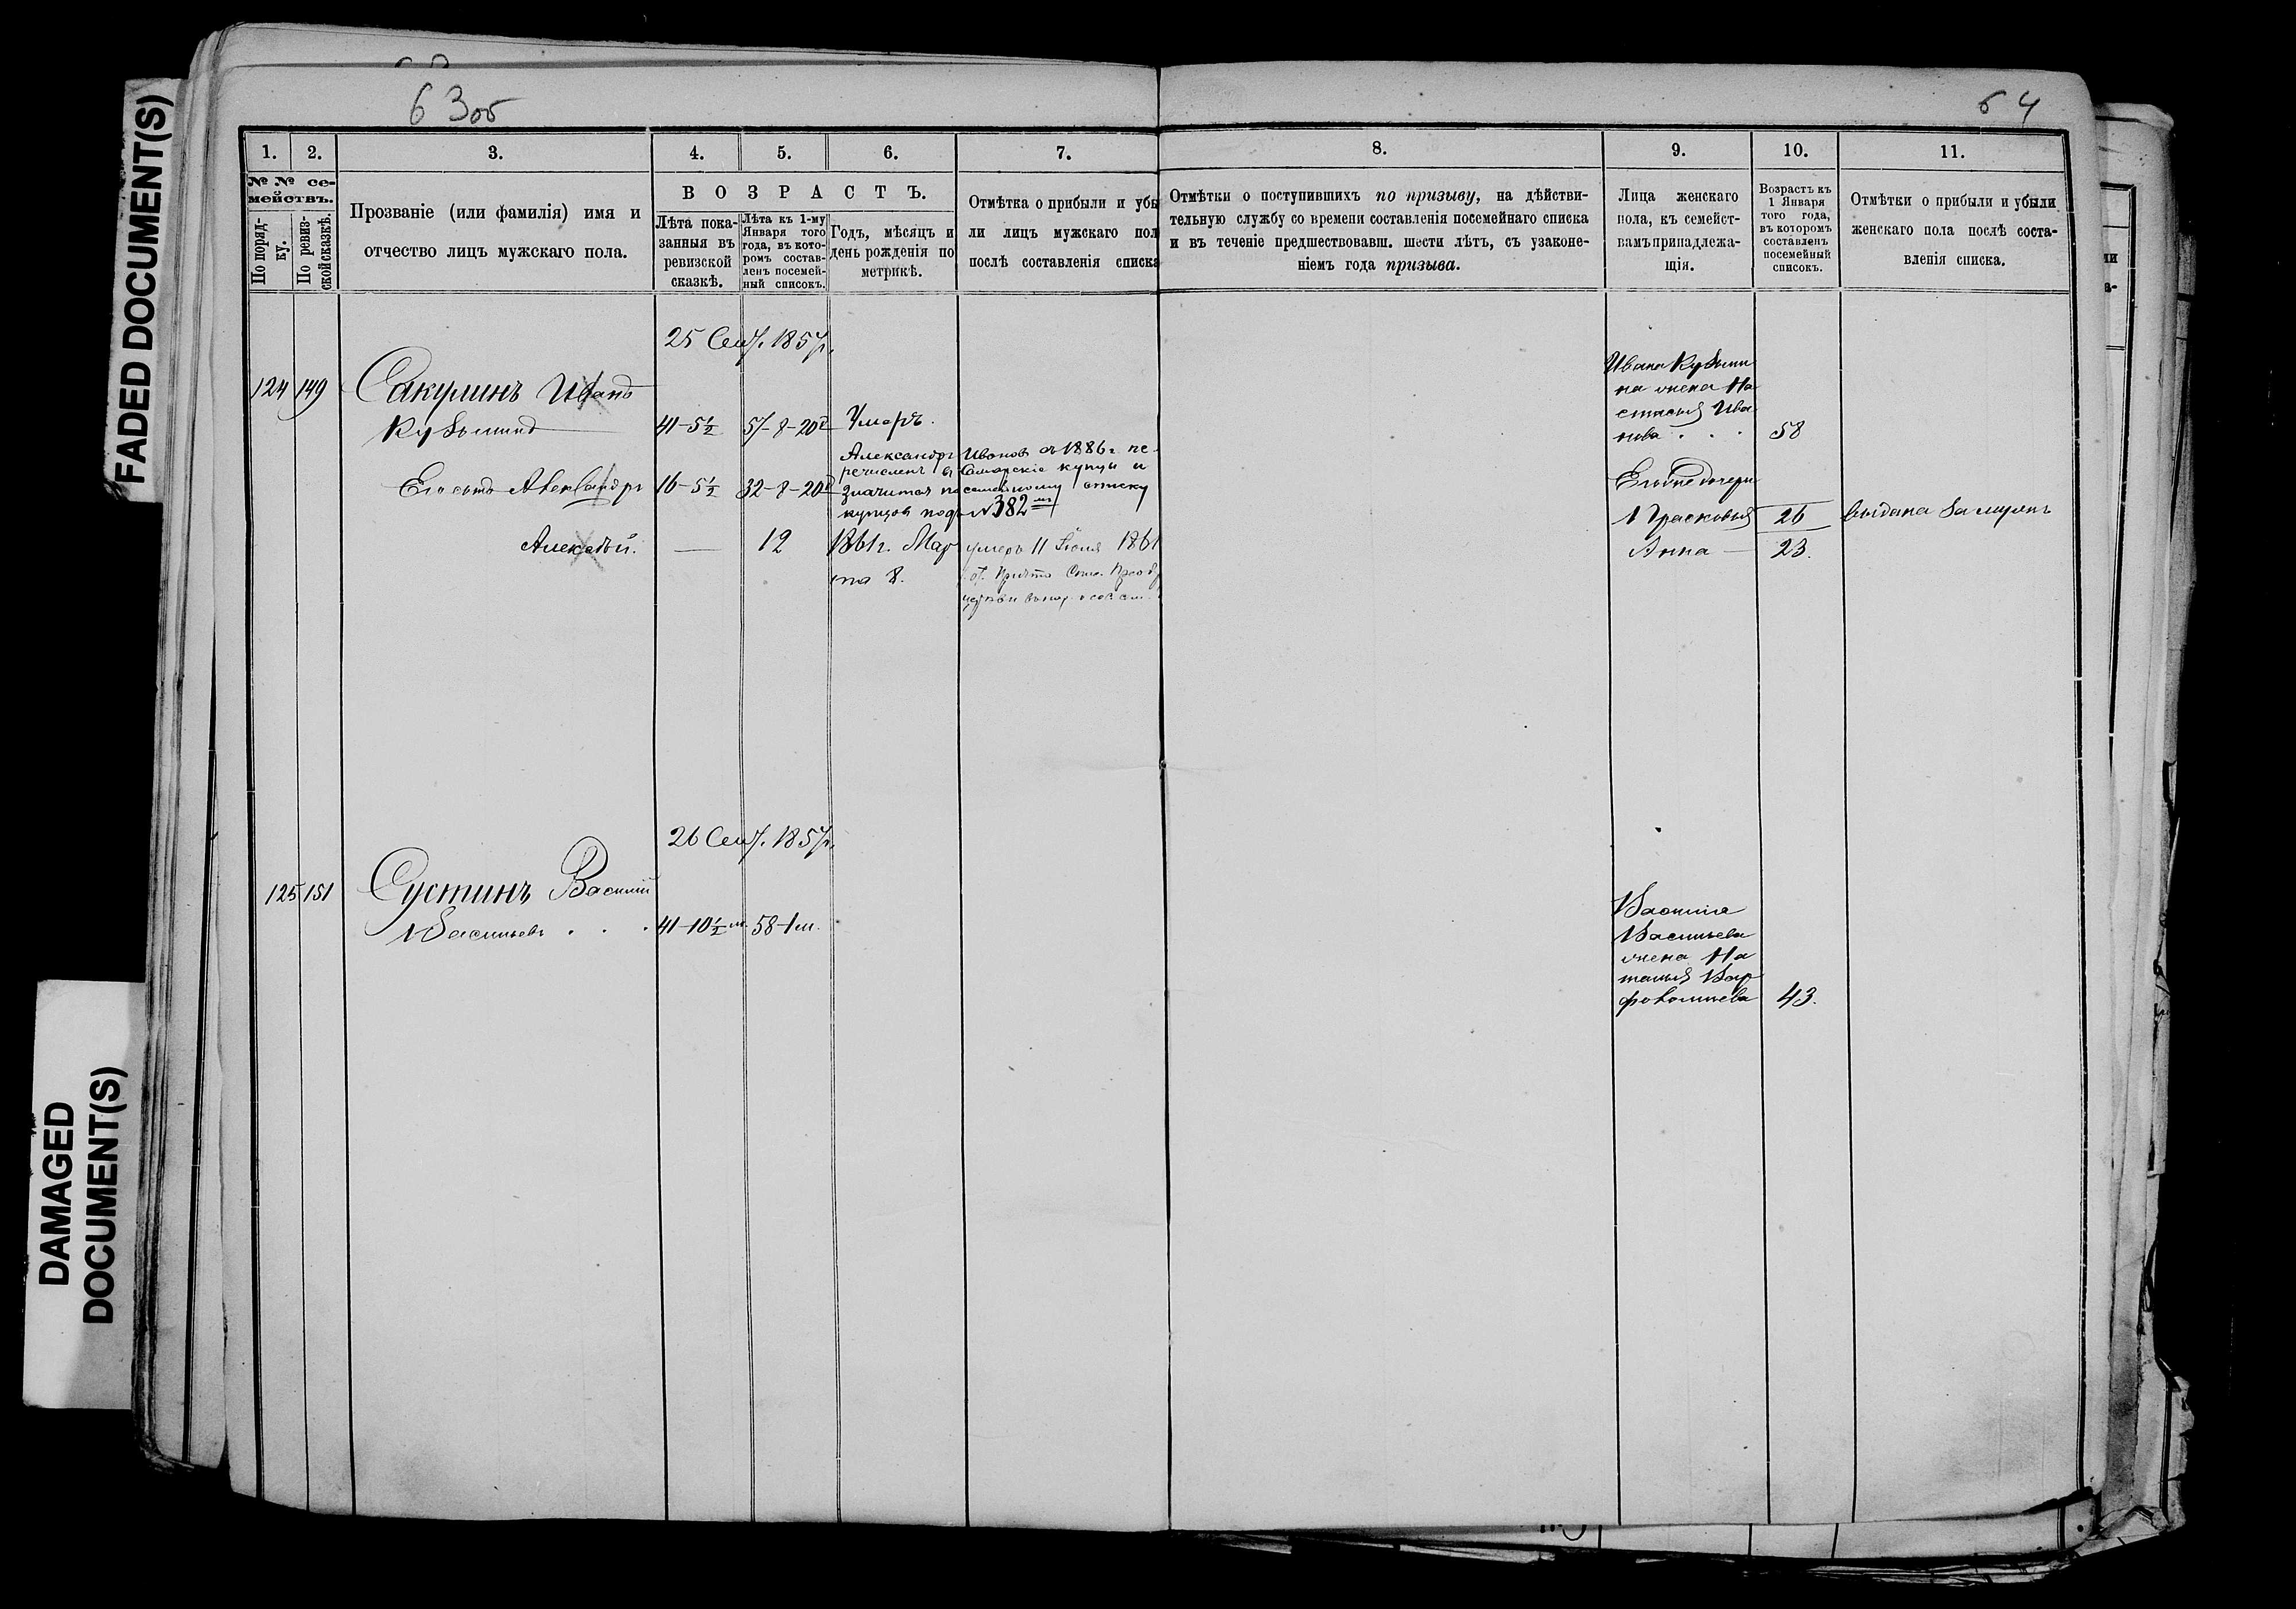 FADED DOCUMENT(S)
DAMAGED
DOCUMENT(S)
63об
64
1. 2. 3. 4. 5. 6. 7. 8. 9. 10. 11.
№ № се-
мействъ.
По поряд-
ку.
По ревиз-
ской сказкѣ.
Прозваніе (или фамилія) имя и
отчество лицъ мужскаго пола.
ВОЗРАСТЪ.
Лѣта пока-
занныя въ
ревизской
сказкѣ.
Лѣта къ 1-му
Января того
года, въ кото-
ромъ состав-
ленъ посемей-
ный списокъ.
Годъ, мѣсяцъ и
день рожденія по
метрикѣ.
Отмѣтка о прибыли и убы
ли лицъ мужскаго пол
послѣ составленія списка
Отмѣтки о поступившихъ по призыву, на дѣйстви-
тельную службу со времени составленія посемейнаго списка
и въ теченіе предшествовавш. шести лѣтъ, съ узаконе-
ніемъ года призыва.
Лица женскаго
пола, къ семейст-
вамъ принадлежа-
щія.
Возрастъ къ
1 Января
того года,
въ которомъ
составленъ
посемейный
списокъ.
Отмѣтки о прибыли и убыли
женскаго пола послѣ соста-
вленія списка.
25 Сент. 1857г.
124 149 Сакулинъ Иванъ
Кузьминъ 41-5½ 57-8-20д Умеръ.
Его сынъ Александръ 16-5½ 32-8-20д
Александръ Ивановъ съ 1886г. пе-
речисленъ въ Самарскіе купцы и
значится по семейному списку
купцовъ подъ №382мъ
Алексѣй. — 12 1861г. Мар
та 8.
умеръ 11 Іюня 1861
Ивана Кузьми
на жена На
стасья Ива
нова . . . 58
Его же дочери
Прасковья 26 выдана замужъ
Анна — 23.
26 Сент. 1857г.
125 151 Сустинъ Василій
Васильевъ . . . 41-10½ м. 58-1м.
Василія
Васильева
жена На
талья Вар
фоломеева 43.